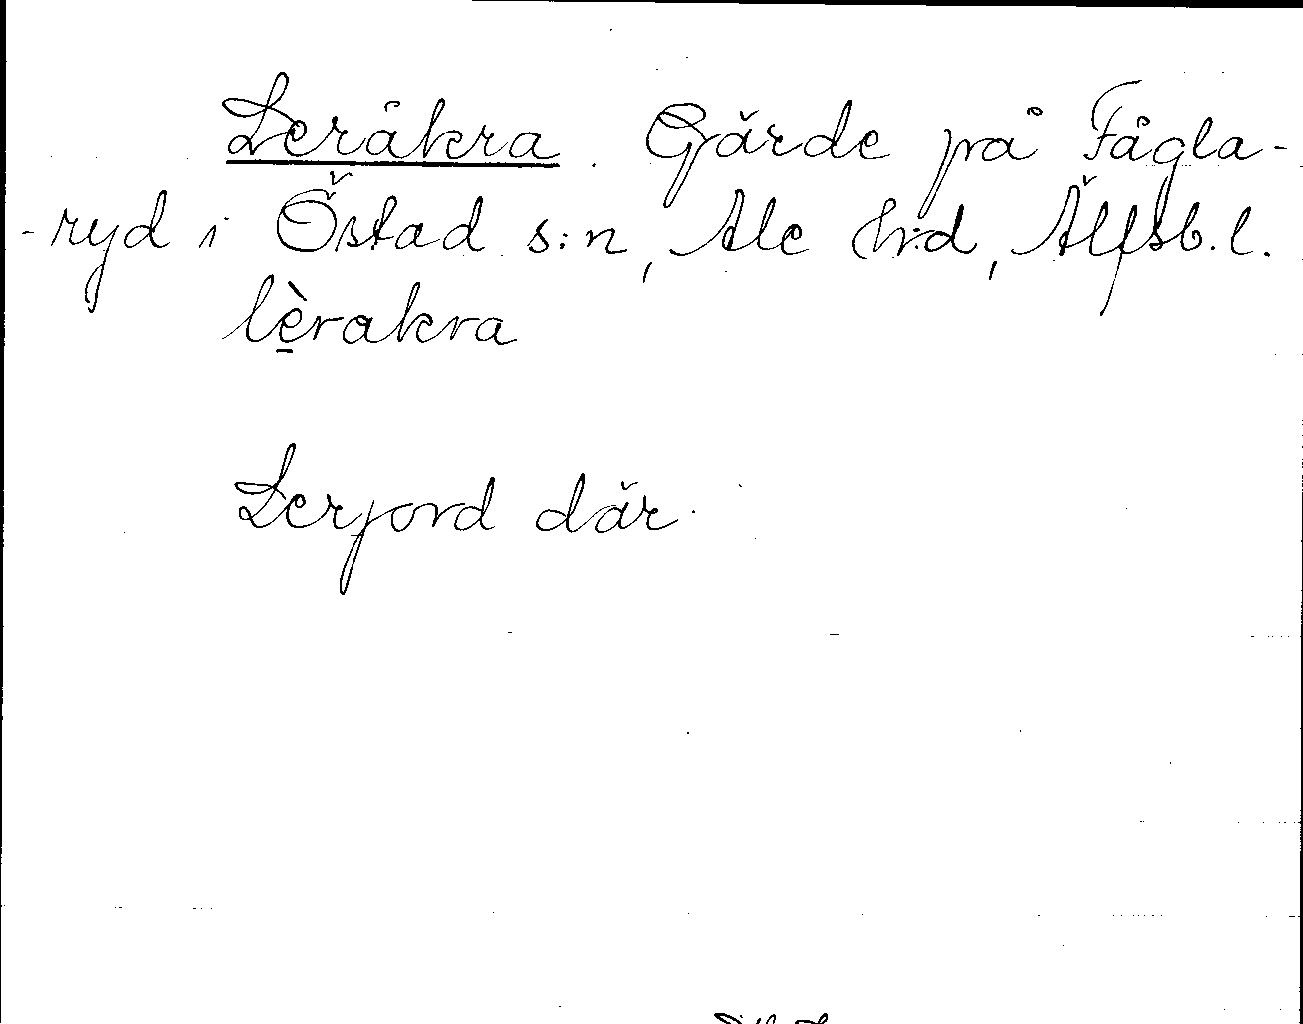 Leråkra. Gärde på Fågla-
-ryd i Östad s:n, Ale h:d, Älfsb. l.
lèrakra
Lerjord där.